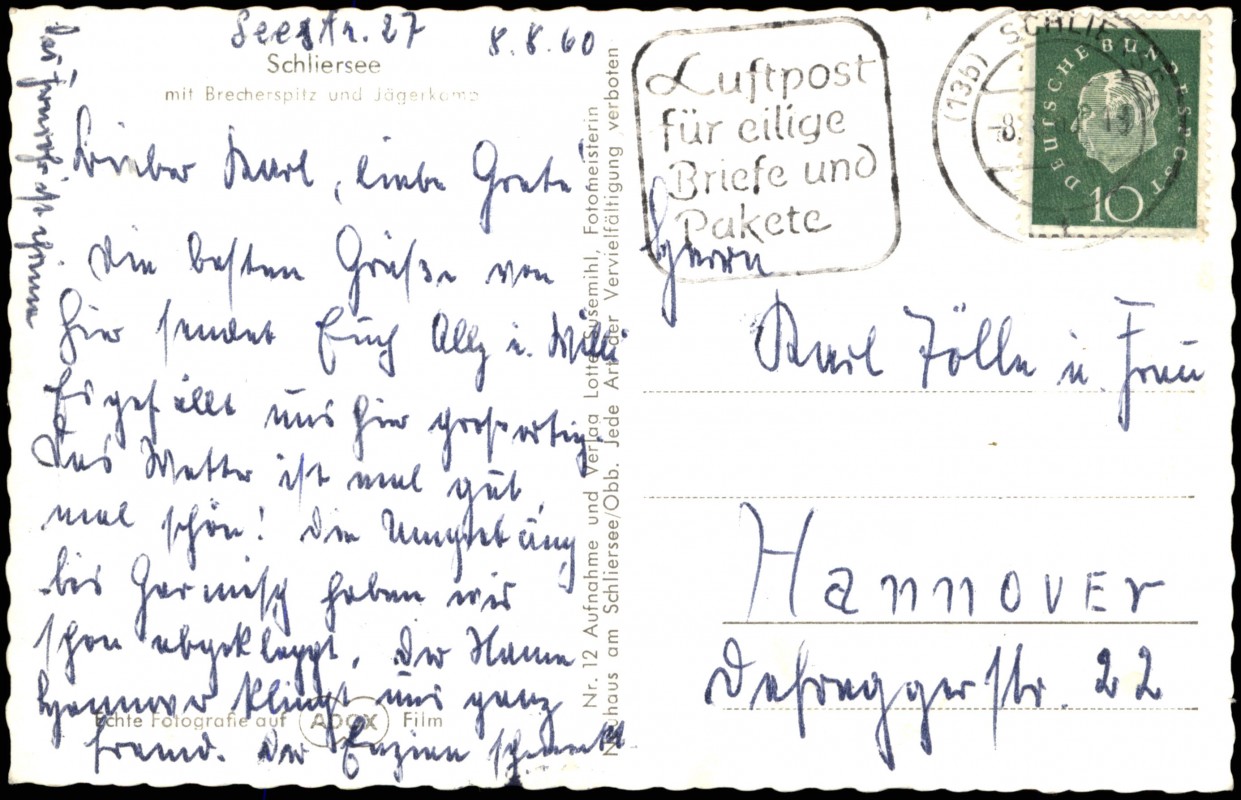 Seestr. 27 8.8.60
Schliersee
mit Brecherspitz und Jägerkamp
Lieber Karl, liebe Grete
Die besten Grüße von
hier sendet Euch Ally u. Willi
Es gefällt uns hier großartig.
Das Wetter ist mal gut,
mal schön! Die Umgebung
bis Garmisch haben wir
schon abgekleppt. Der Name
Hannover klingt uns ganz
fremd. Der Enzian schmeckt
Echte Fotografie auf ADOX Film
Nr. 12 Aufnahme und Verlag Lotte Susemihl, Fotomeisterin
Neuhaus am Schliersee/Obb. Jede Art der Vervielfältigung verboten
Luftpost
für eilige
Briefe und
Pakete
(13b) SCHLIERSEE
DEUTSCHE BUNDESPOST
10
Herrn
Karl Zölle u. Frau
Hannover
Defreggerstr. 22